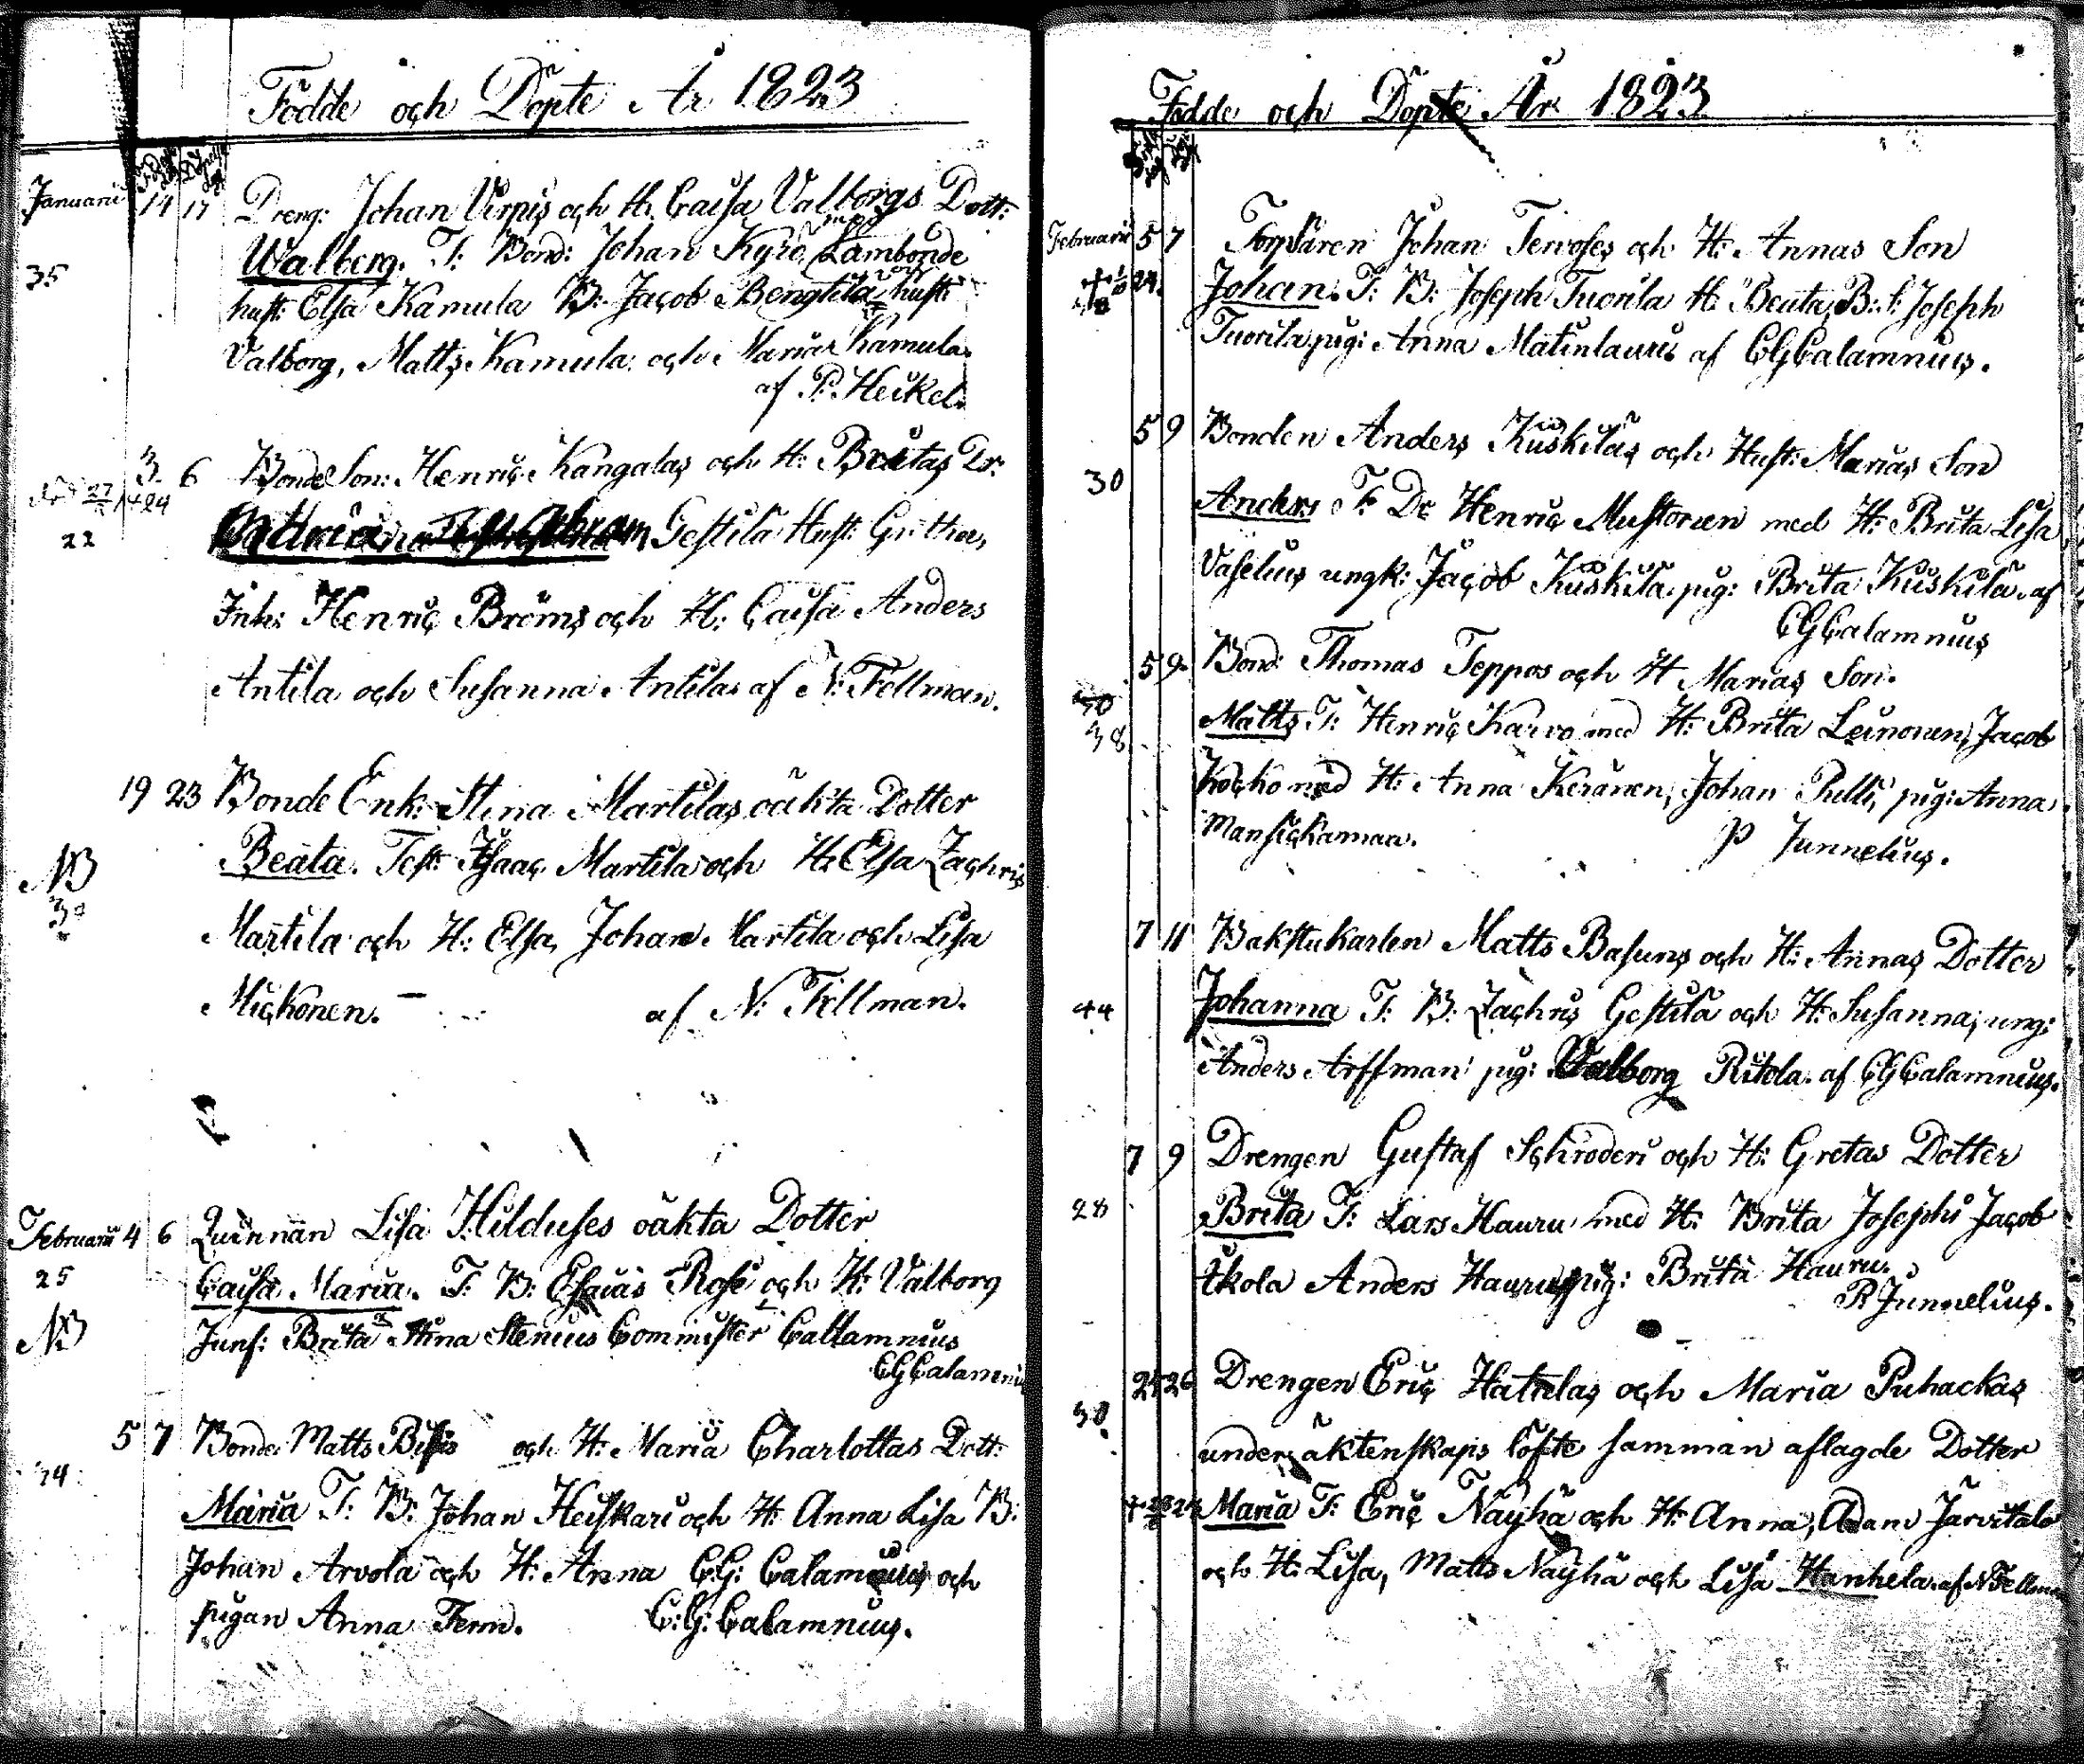 Födde och Döpte År 1823
Januarii 14 17 Dreng: Johan Virpis och H. Caisa Valborgs Dott:
35 Walborg. T: Bond: Johan Kyrö, Lambonde med
hust: Elsa Kamula B: Jacob Bengtila hust:
Valborg, Matts Kamula och Maria Kamula
af P. Heikel.
3 6 Bonde Son: Henric Kangalas och H: Britas Dr:
27
22 Gestila Hust: Gritha,
Inh: Henric Bröms och H: Caisa Anders
Antila och Susanna Antila af N: Fellman.
19 23 Bonde Enk: Stina Martilas oäkta Dotter
NB Beata. Test: Isaac Martila och H: Elsa Zachris
Martila och H: Elsa, Johan Martila och Lisa
Mickonen. — af N: Fellman.
Februarii 4 6 Quinnan Lisa Hilduses oäkta Dotter
25 Caisa Maria. T: B: Esaias Rose och H: Valborg
NB Junf: Brita Stina Stenius Comminister Callamnius
CGCalamnius
5 7 Bonde Matts och H: Maria Charlottas Dott:
Maria T: B: Johan Heiskari och H: Anna Lisa B:
Johan Arvola och H: Anna C:G: Calamnius och
pigan Anna Ferm. C:G: Calamnius.
Födde och Döpte År 1823
Februarii 5 7 Torparen Johan Tervoses och H: Annas Son
Johan. T: B: Joseph Tuorila H: Beata, B: S: Joseph
Tuorila pig: Anna Matinlauri af CGCalamnius.
5 9 Bonden Anders Kiiskiläs och Hust: Marias Son
30 Anders T: Dr Henric Mustonen med H: Brita Lisa
Vaselius ungk: Jacob Kiiskilä pig: Brita Kiiskilä af
CGCalamnius
5 9 Bond: Thomas Teppos och H Marias Son.
38 Matts T: Henric Karvo med H: Brita Leinonen, Jacob
Kocko med H: Anna Keränen, Johan Pulli, pig: Anna
Mansickamaa. P Junnelius.
7 11 Bakstukarlen Matts Basuns och H: Annas Dotter
44 Johanna T: B: Zachris Gestilä och H: Susanna, ung:
Anders Arffman pig: Valborg Ritola af CGCalamnius.
7 9 Drengen Gustaf Schröders och H: Gretas Dotter
28 Brita T: Lars Hauru med H: Brita Josephs Jacob
Ukola Anders Hauru pig: Brita Hauru.
P Junnelius.
24 26 Drengen Eric Hattelas och Maria Puhackas
30 under äktenskaps löfte samman aflagde Dotter
Maria T: Eric Näyhä och H: Anna, Adam Järvitalo
och H: Lisa, Matts Näyhä och Lisa Hanhela af N Fellman